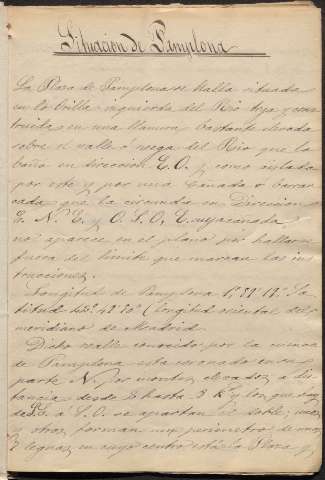 Situacion de Pamplona
La Plaza de Pamplona se halla situada
en la orilla izquierda del Rio Arga y cons
truida en una llanura bastante elevada
sobre el valle ó vega del Rio que la
baña en direccion E.O. y como aislada
por este y por una cañada ó barran
cada que la circunda en Direccion
E. N. E. y O. S. O. E. cuya cañada
no aparece en el plano por hallarse
fuera del limite que marcan las ins
trucciones.
Longitud de Pamplona
titud 42° 49' (Longitud oriental del
meridiano de Madrid
Dicho valle conocido por la cuenca
de Pamplona esta coronado en su
parte N. por montes elevados á dis
tancia desde 2 hasta 3 K y los que
á S.O. se apartan el doble; unos
y otros forman un perimetro de unas
leguas en cuyo centro está la Plaza y